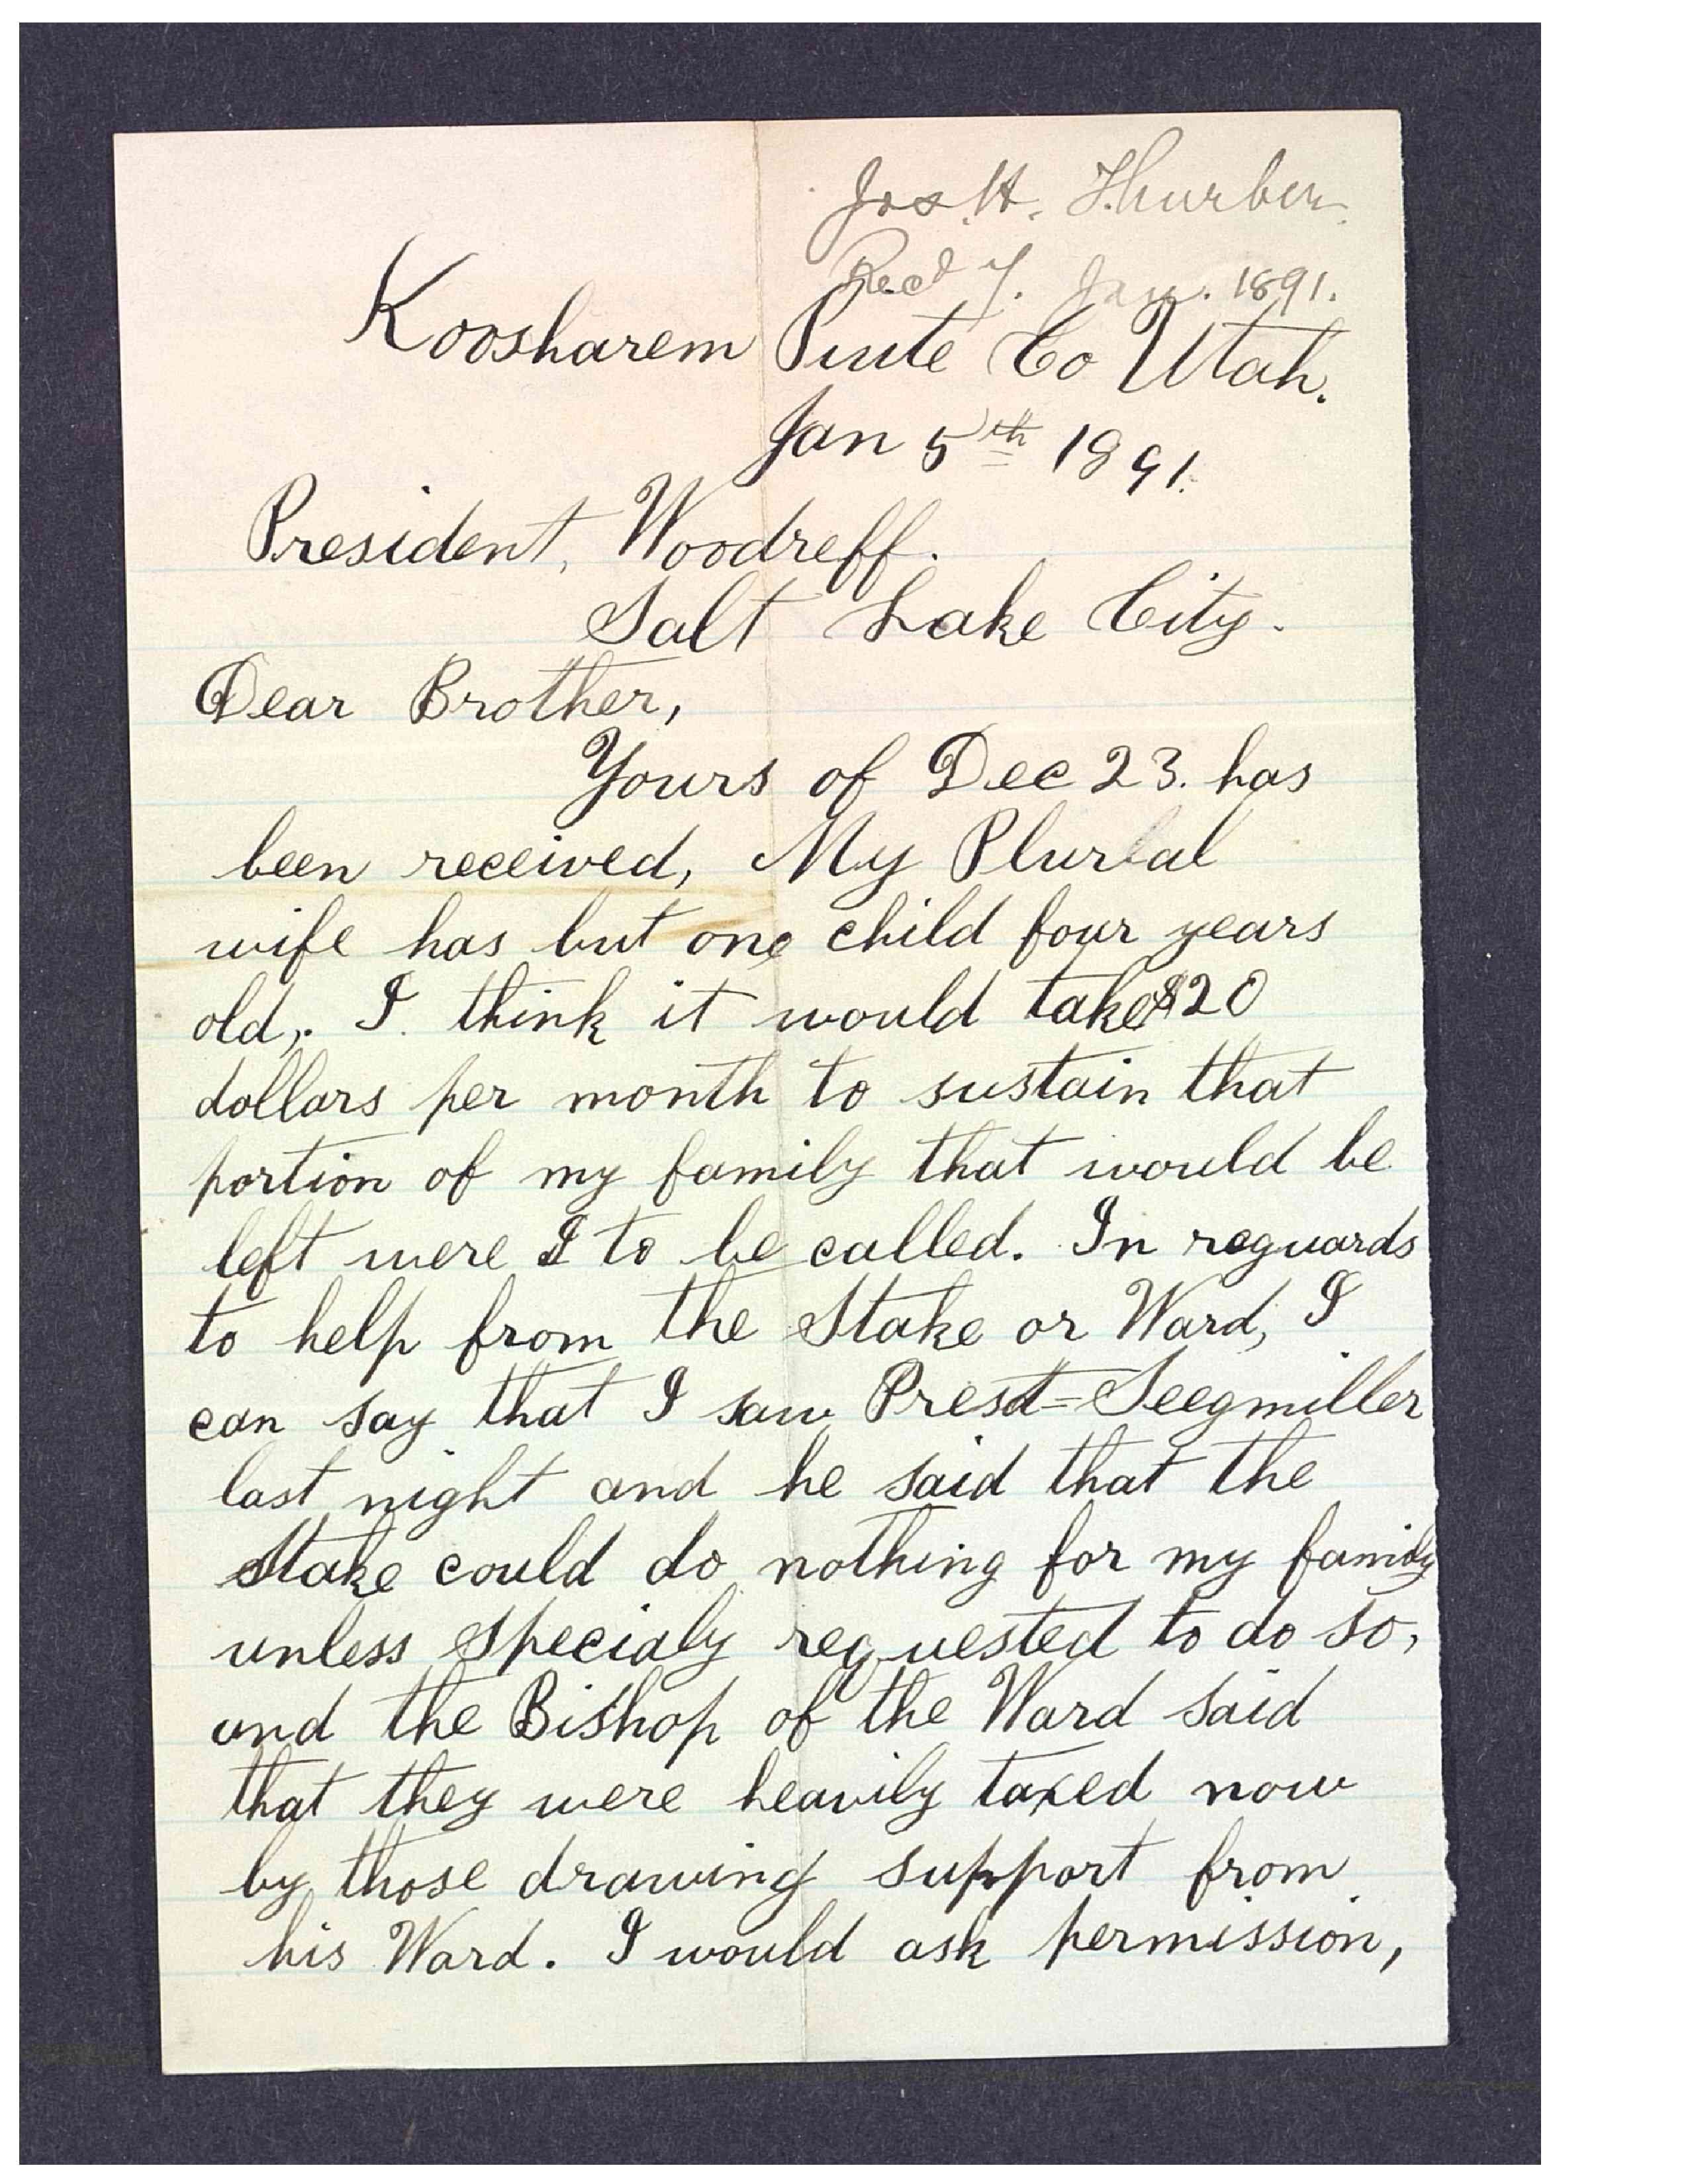 Jos. H. Thurber.
Recd 7. Jan. 1891.
Koosharem Piute Co Utah.
Jan 5th 1891.
President, Woodreff.
Salt Lake City.
Dear Brother,
Yours of Dec 23. has
been received, My Plural
wife has but one child four years
old,. I think it would take $20
dollars per month to sustain that
portion of my family that would be
left were I to be called. In reguards
to help from the Stake or Ward, I
can say that I saw Prest= Seegmiller
last night and he said that the
Stake could do nothing for my family
unless specialy requested to do so,
and the Bishop of the Ward said
that they were heavily taxed now
by those drawing support from
his Ward. I would ask permission,